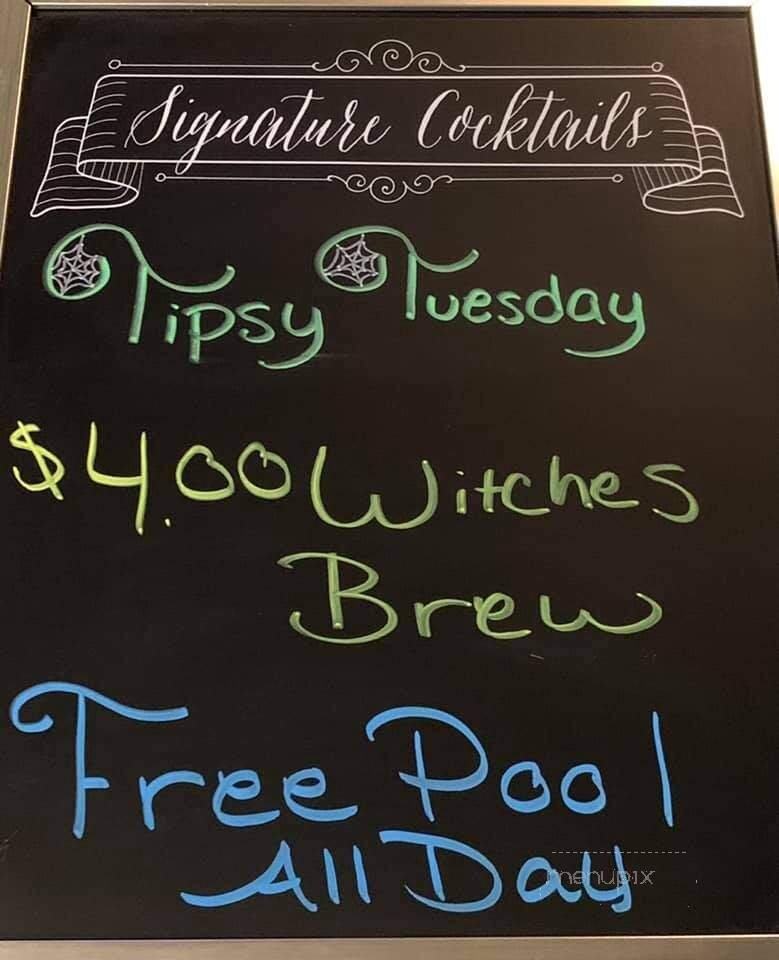 Signature Cocktails
Tipsy Tuesday
$4.00 Witches
Brew
Free Pool
All Day
menupix